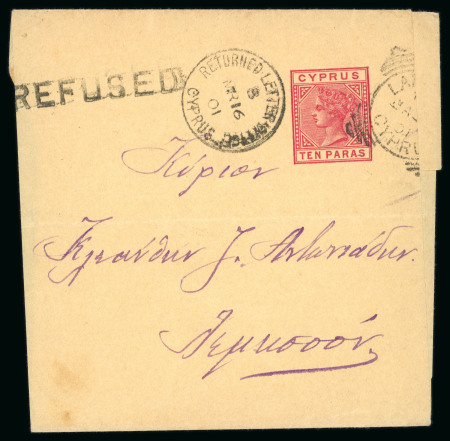 REFUSED
RETURNED LETTER OFFICE
B
MR 16
01
CYPRUS
CYPRUS
TEN PARAS
LA
CYPRU
Κύριον
Κλεάνθην Ζ. Αντωνιάδην.
Λεμησσόν